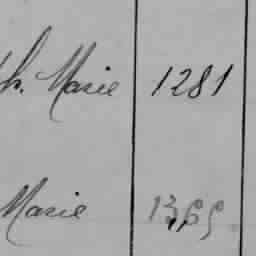 h. Marie 1281
Marie 1365